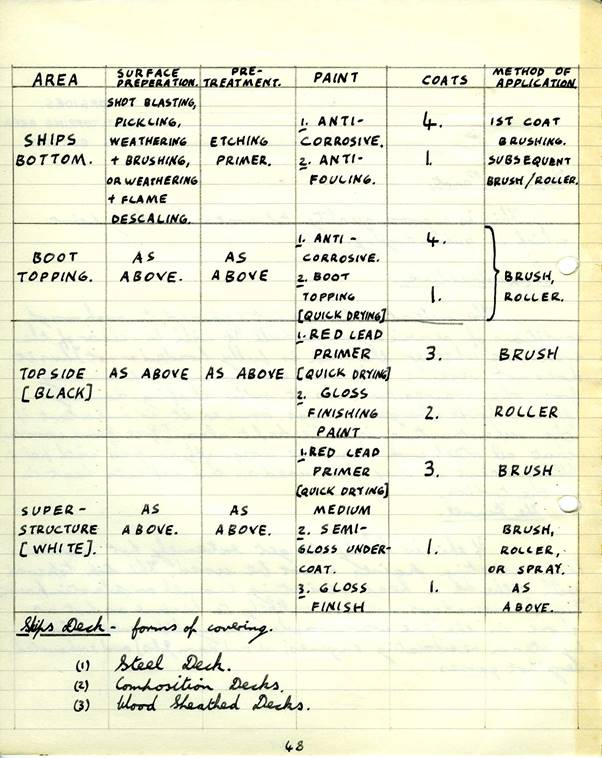 AREA SURFACE PREPERATION. PRE-TREATMENT. PAINT COATS METHOD OF APPLICATION
SHIPS BOTTOM. SHOT BLASTING, PICKLING, WEATHERING + BRUSHING, OR WEATHERING + FLAME DESCALING. ETCHING PRIMER. 1. ANTI-CORROSIVE. 4. 1ST COAT BRUSHING.
2. ANTI-FOULING. 1. SUBSEQUENT BRUSH/ROLLER.
BOOT TOPPING. AS ABOVE. AS ABOVE 1. ANTI-CORROSIVE. 4. BRUSH, ROLLER.
2. BOOT TOPPING [QUICK DRYING] 1.
TOPSIDE [BLACK] AS ABOVE AS ABOVE 1. RED LEAD PRIMER [QUICK DRYING] 3. BRUSH
2. GLOSS FINISHING PAINT 2. ROLLER
SUPER-STRUCTURE [WHITE]. AS ABOVE. AS ABOVE. 1. RED LEAD PRIMER [QUICK DRYING] MEDIUM 3. BRUSH
2. SEMI-GLOSS UNDER-COAT. 1. BRUSH, ROLLER, OR SPRAY.
3. GLOSS FINISH 1. AS ABOVE.
Ships Deck - forms of covering.
(1) Steel Deck.
(2) Composition Decks.
(3) Wood Sheathed Decks.
48